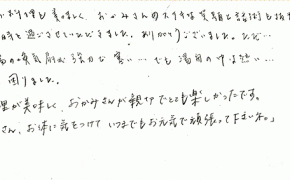 お料理も美味しく、おかみさんのステキな笑顔と話術も
時を過ごさせていただきました。ありがとうございました。ただ…
の換気扇が強力な寒い… でも湯舟のゆるい…
困りました。
理が美味しく、おかみさんが親切でとても楽しかったです。
さん、お体に気をつけていつまでもお元気で頑張って下さいね。」